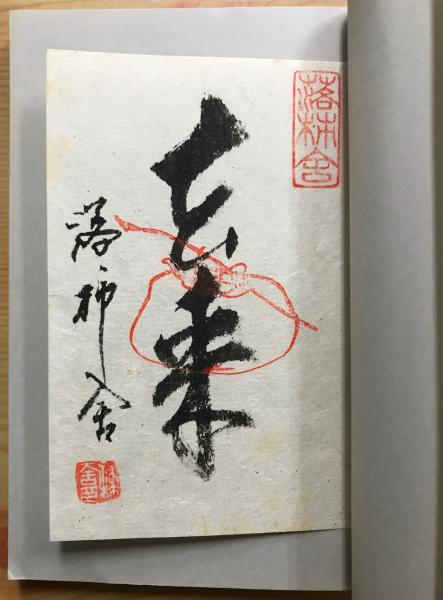 落柿舎
去来
落柿舎